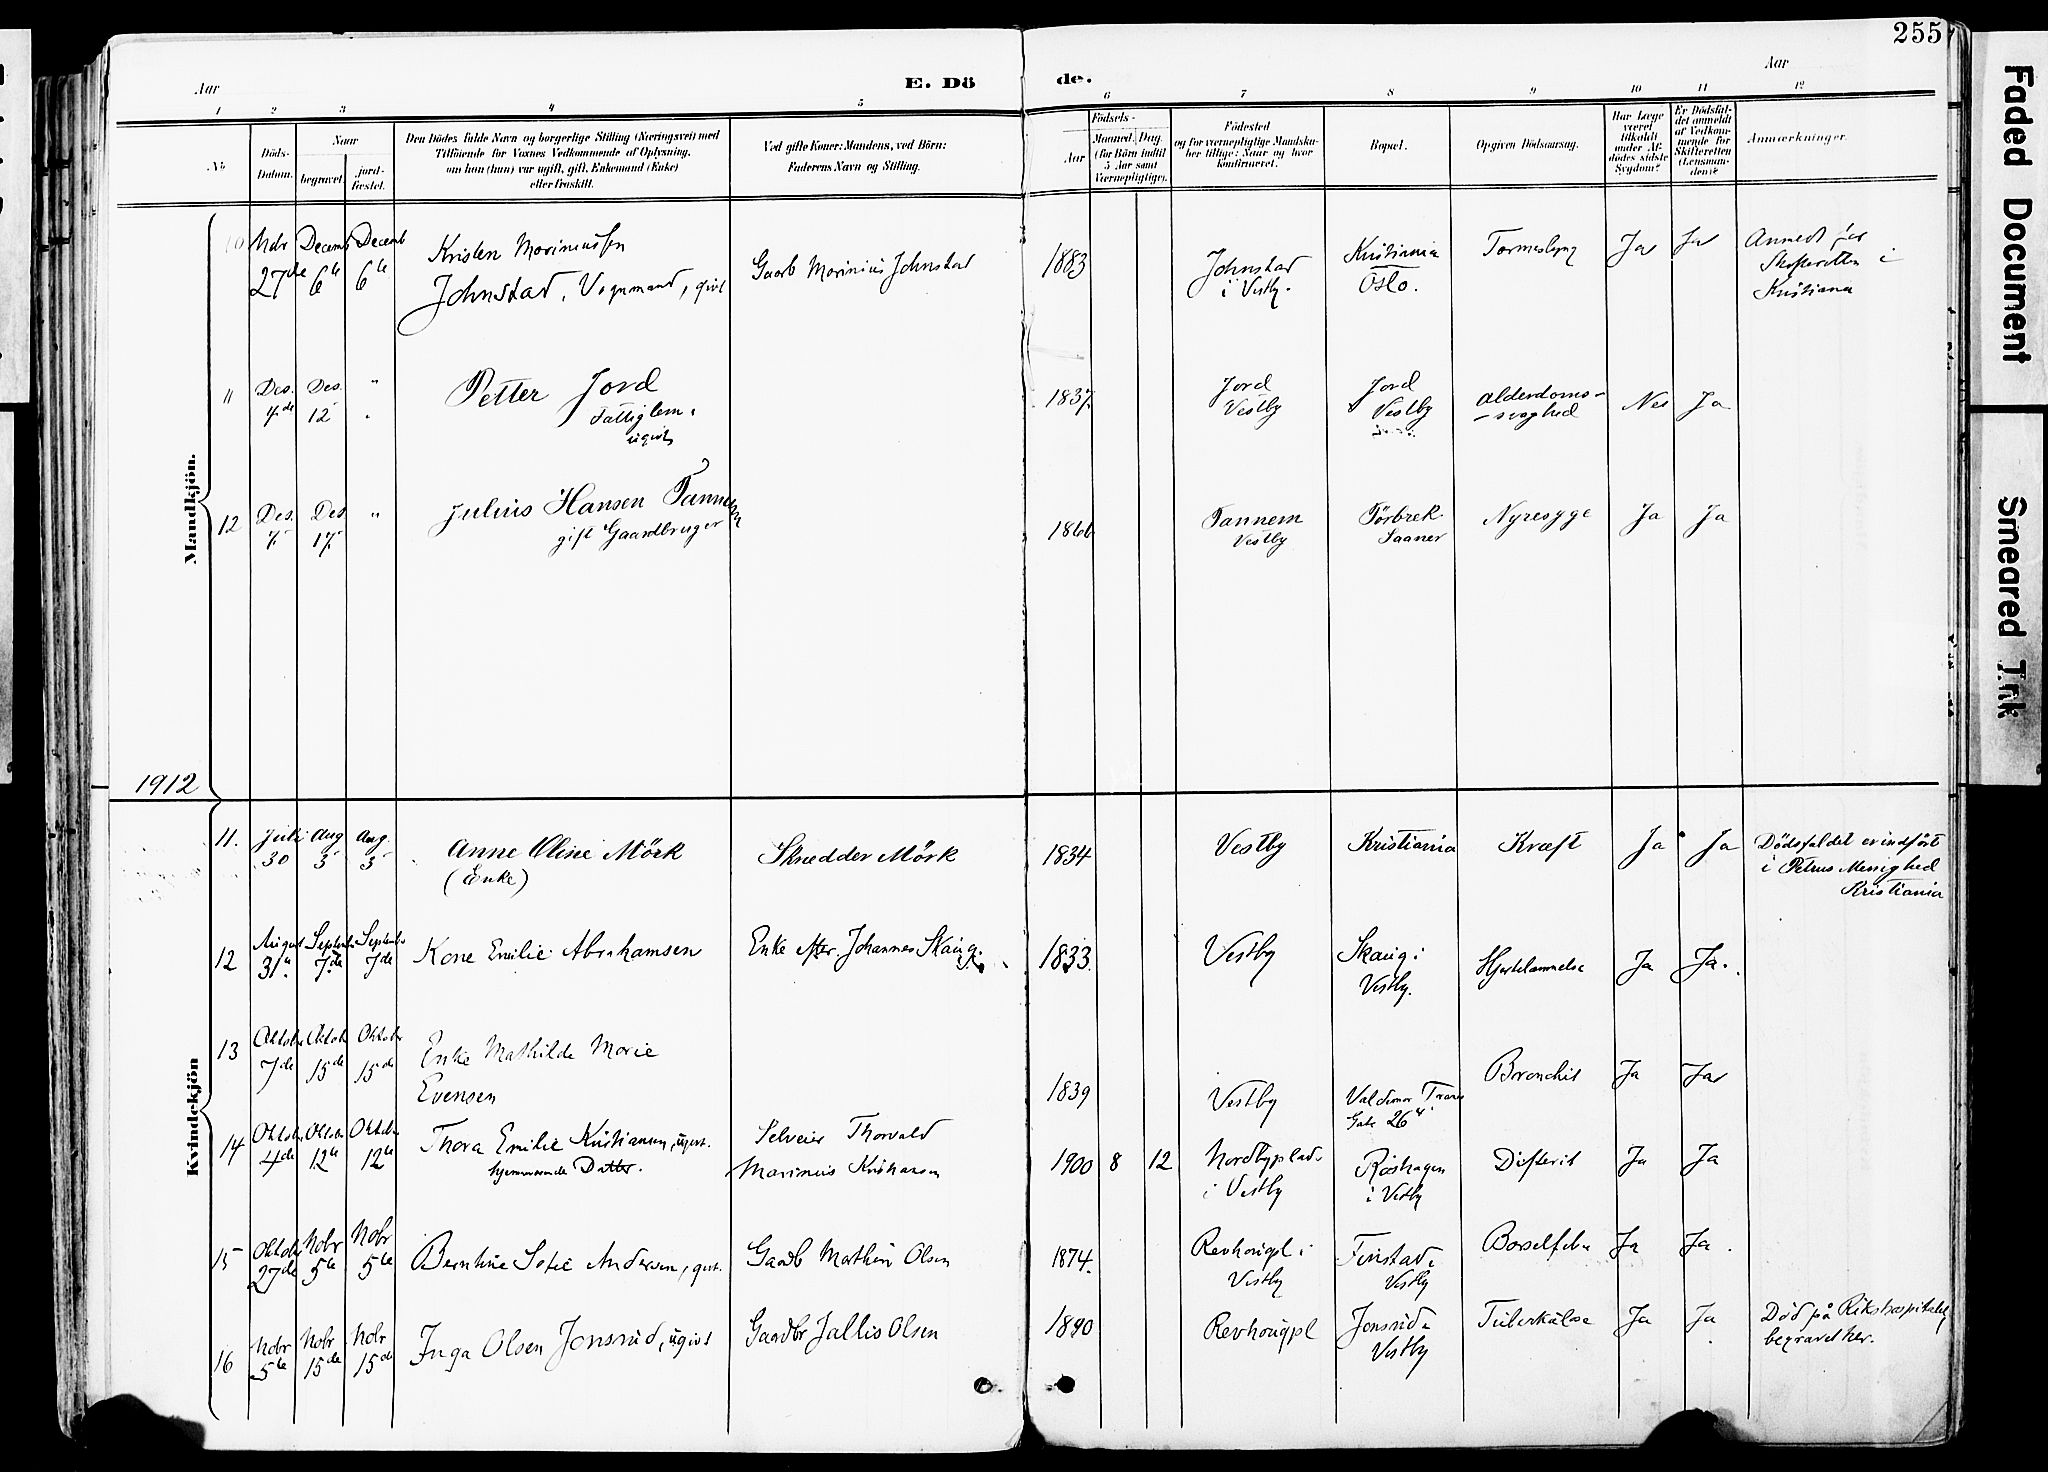 255
Aar
E. Dö
de.
Aar
1 2 3 4 5 6 7 8 9 10 11 12
No
Döds-Datum.
Naar
begravet.
jord-fæstet.
Den Dödes fulde Navn og borgerlige Stilling (Næringsvei) med
Tilföiende for Voxnes Vedkommende af Oplysning,
om han (hun) var ugift, gift, Enkemand (Enke)
eller fraskilt.
Ved gifte Koner: Mandens, ved Börn:
Faderens Navn og Stilling.
Födsels-
Aar
Maaned. Dag.
(for Börn indtil
5 Aar samt
Værnepligtige).
Födested
og for værnepligtige Mandska-
ber tillige: Naar og hvor
konfirmeret.
Bopæl.
Opgiven Dödsaarsag.
Har Læge
været
tilkaldt
under Af-
dödes sidste
Sygdom?
Er Dödsfal-
det anmeldt
af Vedkom-
mende for
Skifteretten
(Lensman-
den)?
Anmærkninger.
Mandkjön.
10 Nobr 27de Decemb 6te Decemb 6te Kristen Marinussen
Johnstad, Vognmand, gift Gaarb Marinius Johnstad 1883 Johnstad
i Vestby. Kristiania
Oslo. Ja Ja
Skifteretten i
Kristiania
11 Des. 4de Des. 12 " Petter Jord
Fattiglem.
ugift 1837. Jord
Vestby Jord
Vestby Alderdoms-
-svaghed Nei Ja
12 Des. 7 Des. 17 " Julius Hansen Tannem
gift Gaardbruger 1866 Tannem
Vestby Törbrek
Saaner Nyresyge Ja Ja
1912
Kvindekjön
11. Juli 30 Aug 3 Aug. 3 Anne Oline Mörk
(Enke) Skrædder Mörk 1834 Vestby Kristiania Kræft Ja Ja Dödsfaldet er indfört
i Petrus Menighed
Kristiania
12 August 31te Septembr 7de Septembr 7de Kone Emilie Abrahamsen Enke efter Johannes Skaug. 1833. Vestby Skaug i
Vestby. Hjertelammelse Ja Ja.
13 Oktobr 7de Oktob 15de Oktober 15de Enke Mathilde Marie
Evensen 1839 Vestby Valdemar Tranes
Gate 26 Bronchit Ja Ja
14 Oktober 4de Oktob 12te Oktob 12te Thora Emilie Kristiansen, ugift.
hjemmeværende Datter. Selveier Thorvald
Marinius Kristiansen 1900 8 12 Nordbyplads
i Vestby Röshagen
i Vestby Difterit Ja Ja
15 Oktober 27de Nobr 5te Nobr 5te Berntine Sofie Andersen, gift. Gaardb Mathias Olsen 1874. Revhougpl i
Vestby Finstad i
Vestby Barselfeber Ja Ja.
16 Nobr 5te Nobr 15de Nobr 15de Inga Olsen Jonsrud, ugift Gaardbr Jallis Olsen 1890 Revhougpl Jonsrud i
Vestby Tuberkulose Ja Ja Död på Rikshospitalet,
begravet her.
Faded Document
Smeared Ink